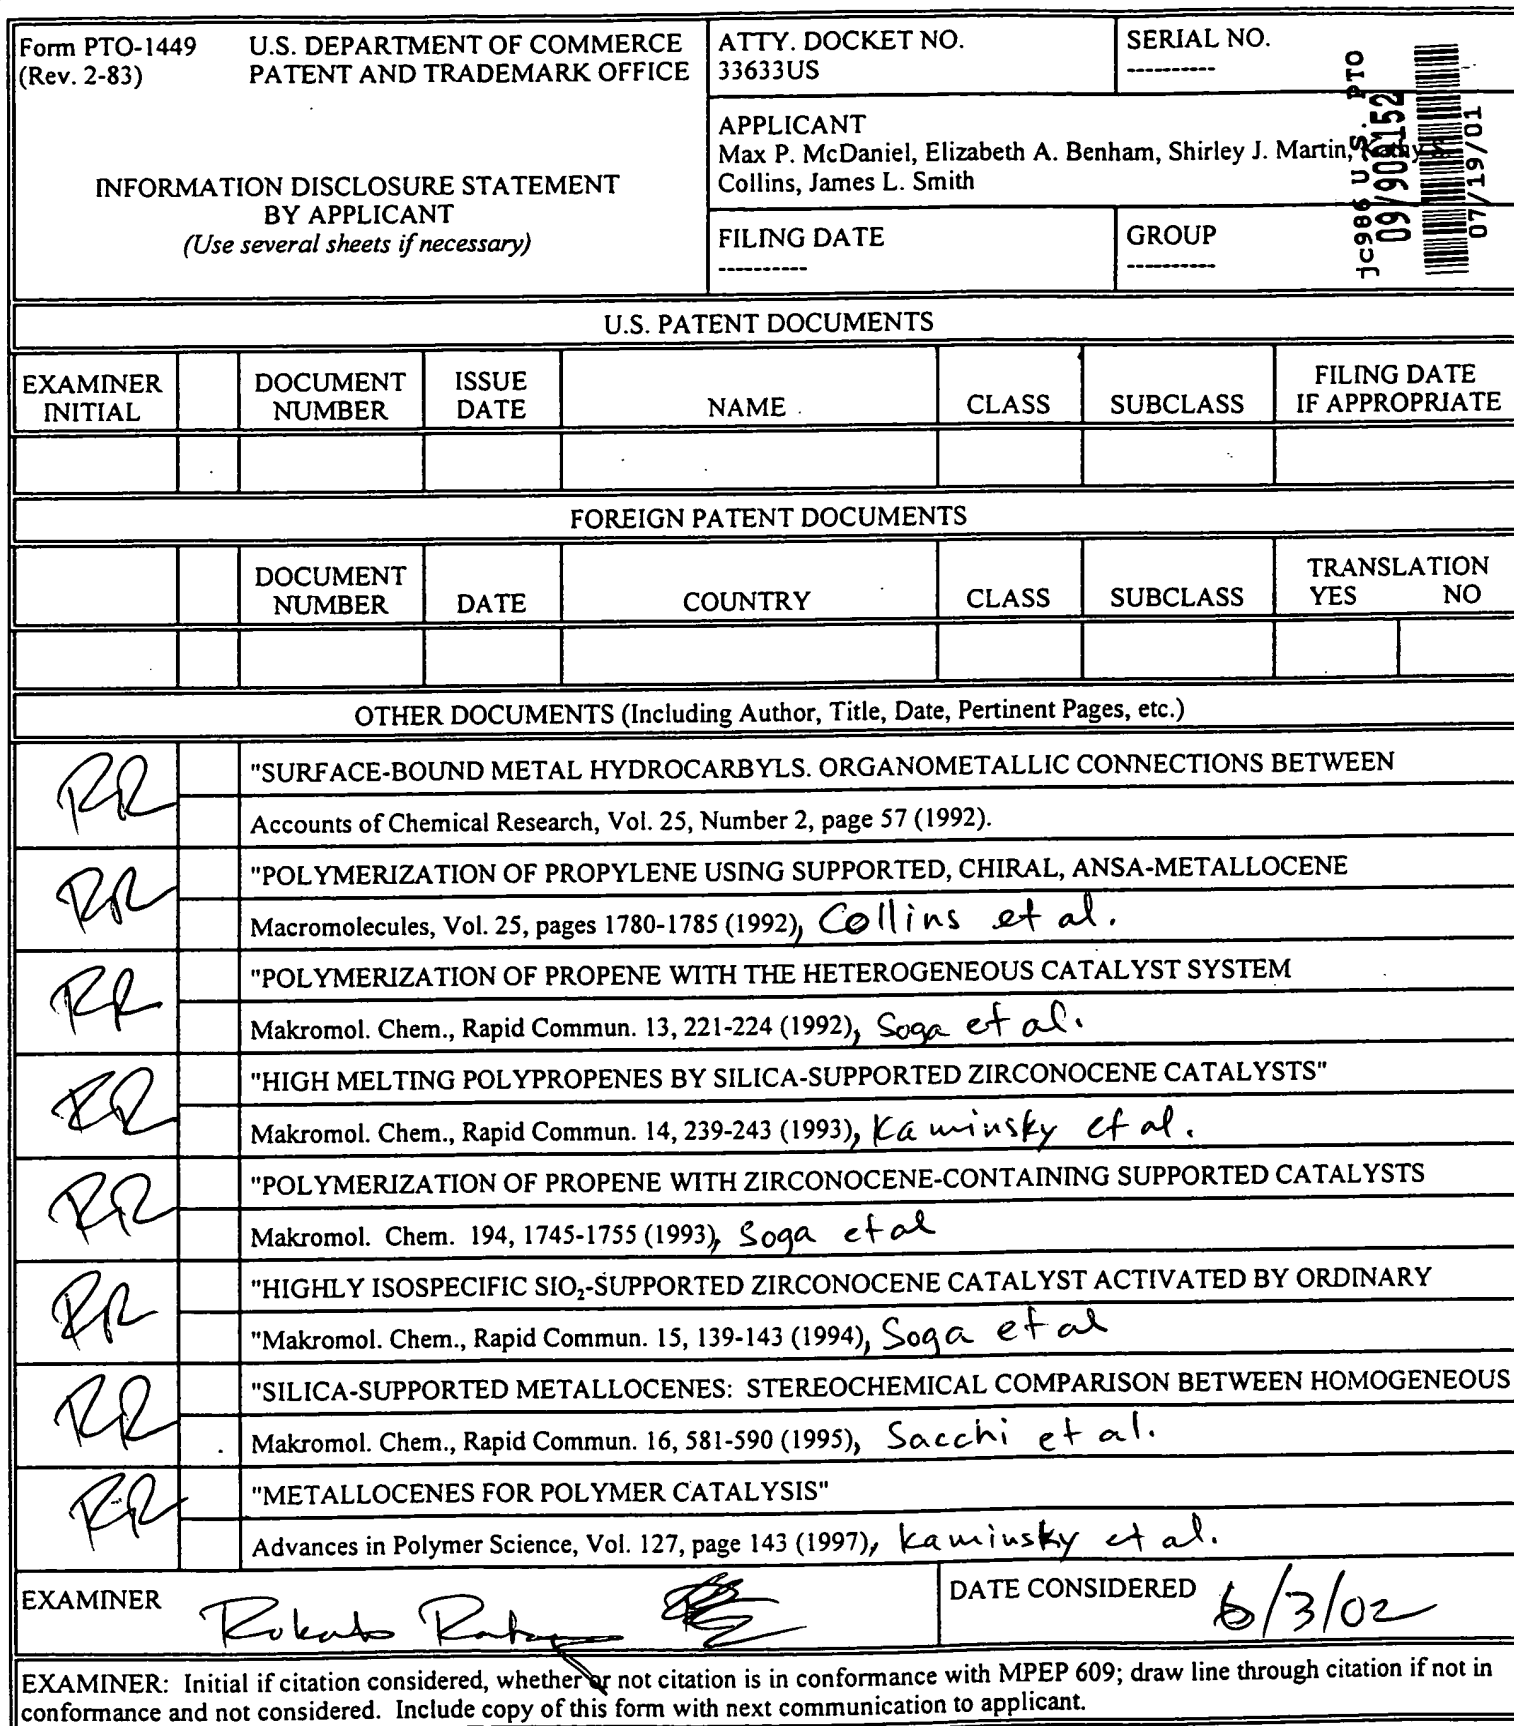 Form PTO-1449 U.S. DEPARTMENT OF COMMERCE
(Rev. 2-83) PATENT AND TRADEMARK OFFICE
INFORMATION DISCLOSURE STATEMENT
BY APPLICANT
(Use several sheets if necessary)
ATTY. DOCKET NO.
33633US
SERIAL NO.
----------
APPLICANT
Max P. McDaniel, Elizabeth A. Benham, Shirley J. Martin, Kathy S.
Collins, James L. Smith
FILING DATE
----------
GROUP
----------
jc986 U.S. PTO
09/900152
07/19/01
U.S. PATENT DOCUMENTS
EXAMINER INITIAL
DOCUMENT NUMBER
ISSUE DATE
NAME
CLASS
SUBCLASS
FILING DATE IF APPROPRIATE
FOREIGN PATENT DOCUMENTS
DOCUMENT NUMBER
DATE
COUNTRY
CLASS
SUBCLASS
TRANSLATION
YES NO
OTHER DOCUMENTS (Including Author, Title, Date, Pertinent Pages, etc.)
RR "SURFACE-BOUND METAL HYDROCARBYLS. ORGANOMETALLIC CONNECTIONS BETWEEN
Accounts of Chemical Research, Vol. 25, Number 2, page 57 (1992).
RR "POLYMERIZATION OF PROPYLENE USING SUPPORTED, CHIRAL, ANSA-METALLOCENE
Macromolecules, Vol. 25, pages 1780-1785 (1992), Collins et al.
RR "POLYMERIZATION OF PROPENE WITH THE HETEROGENEOUS CATALYST SYSTEM
Makromol. Chem., Rapid Commun. 13, 221-224 (1992), Soga et al.
RR "HIGH MELTING POLYPROPENES BY SILICA-SUPPORTED ZIRCONOCENE CATALYSTS"
Makromol. Chem., Rapid Commun. 14, 239-243 (1993), Kaminsky et al.
RR "POLYMERIZATION OF PROPENE WITH ZIRCONOCENE-CONTAINING SUPPORTED CATALYSTS
Makromol. Chem. 194, 1745-1755 (1993), Soga et al
RR "HIGHLY ISOSPECIFIC SIO₂-SUPPORTED ZIRCONOCENE CATALYST ACTIVATED BY ORDINARY
"Makromol. Chem., Rapid Commun. 15, 139-143 (1994), Soga et al
RR "SILICA-SUPPORTED METALLOCENES: STEREOCHEMICAL COMPARISON BETWEEN HOMOGENEOUS
Makromol. Chem., Rapid Commun. 16, 581-590 (1995), Sacchi et al.
RR "METALLOCENES FOR POLYMER CATALYSIS"
Advances in Polymer Science, Vol. 127, page 143 (1997), Kaminsky et al.
EXAMINER
DATE CONSIDERED 6/3/02
EXAMINER: Initial if citation considered, whether or not citation is in conformance with MPEP 609; draw line through citation if not in
conformance and not considered. Include copy of this form with next communication to applicant.